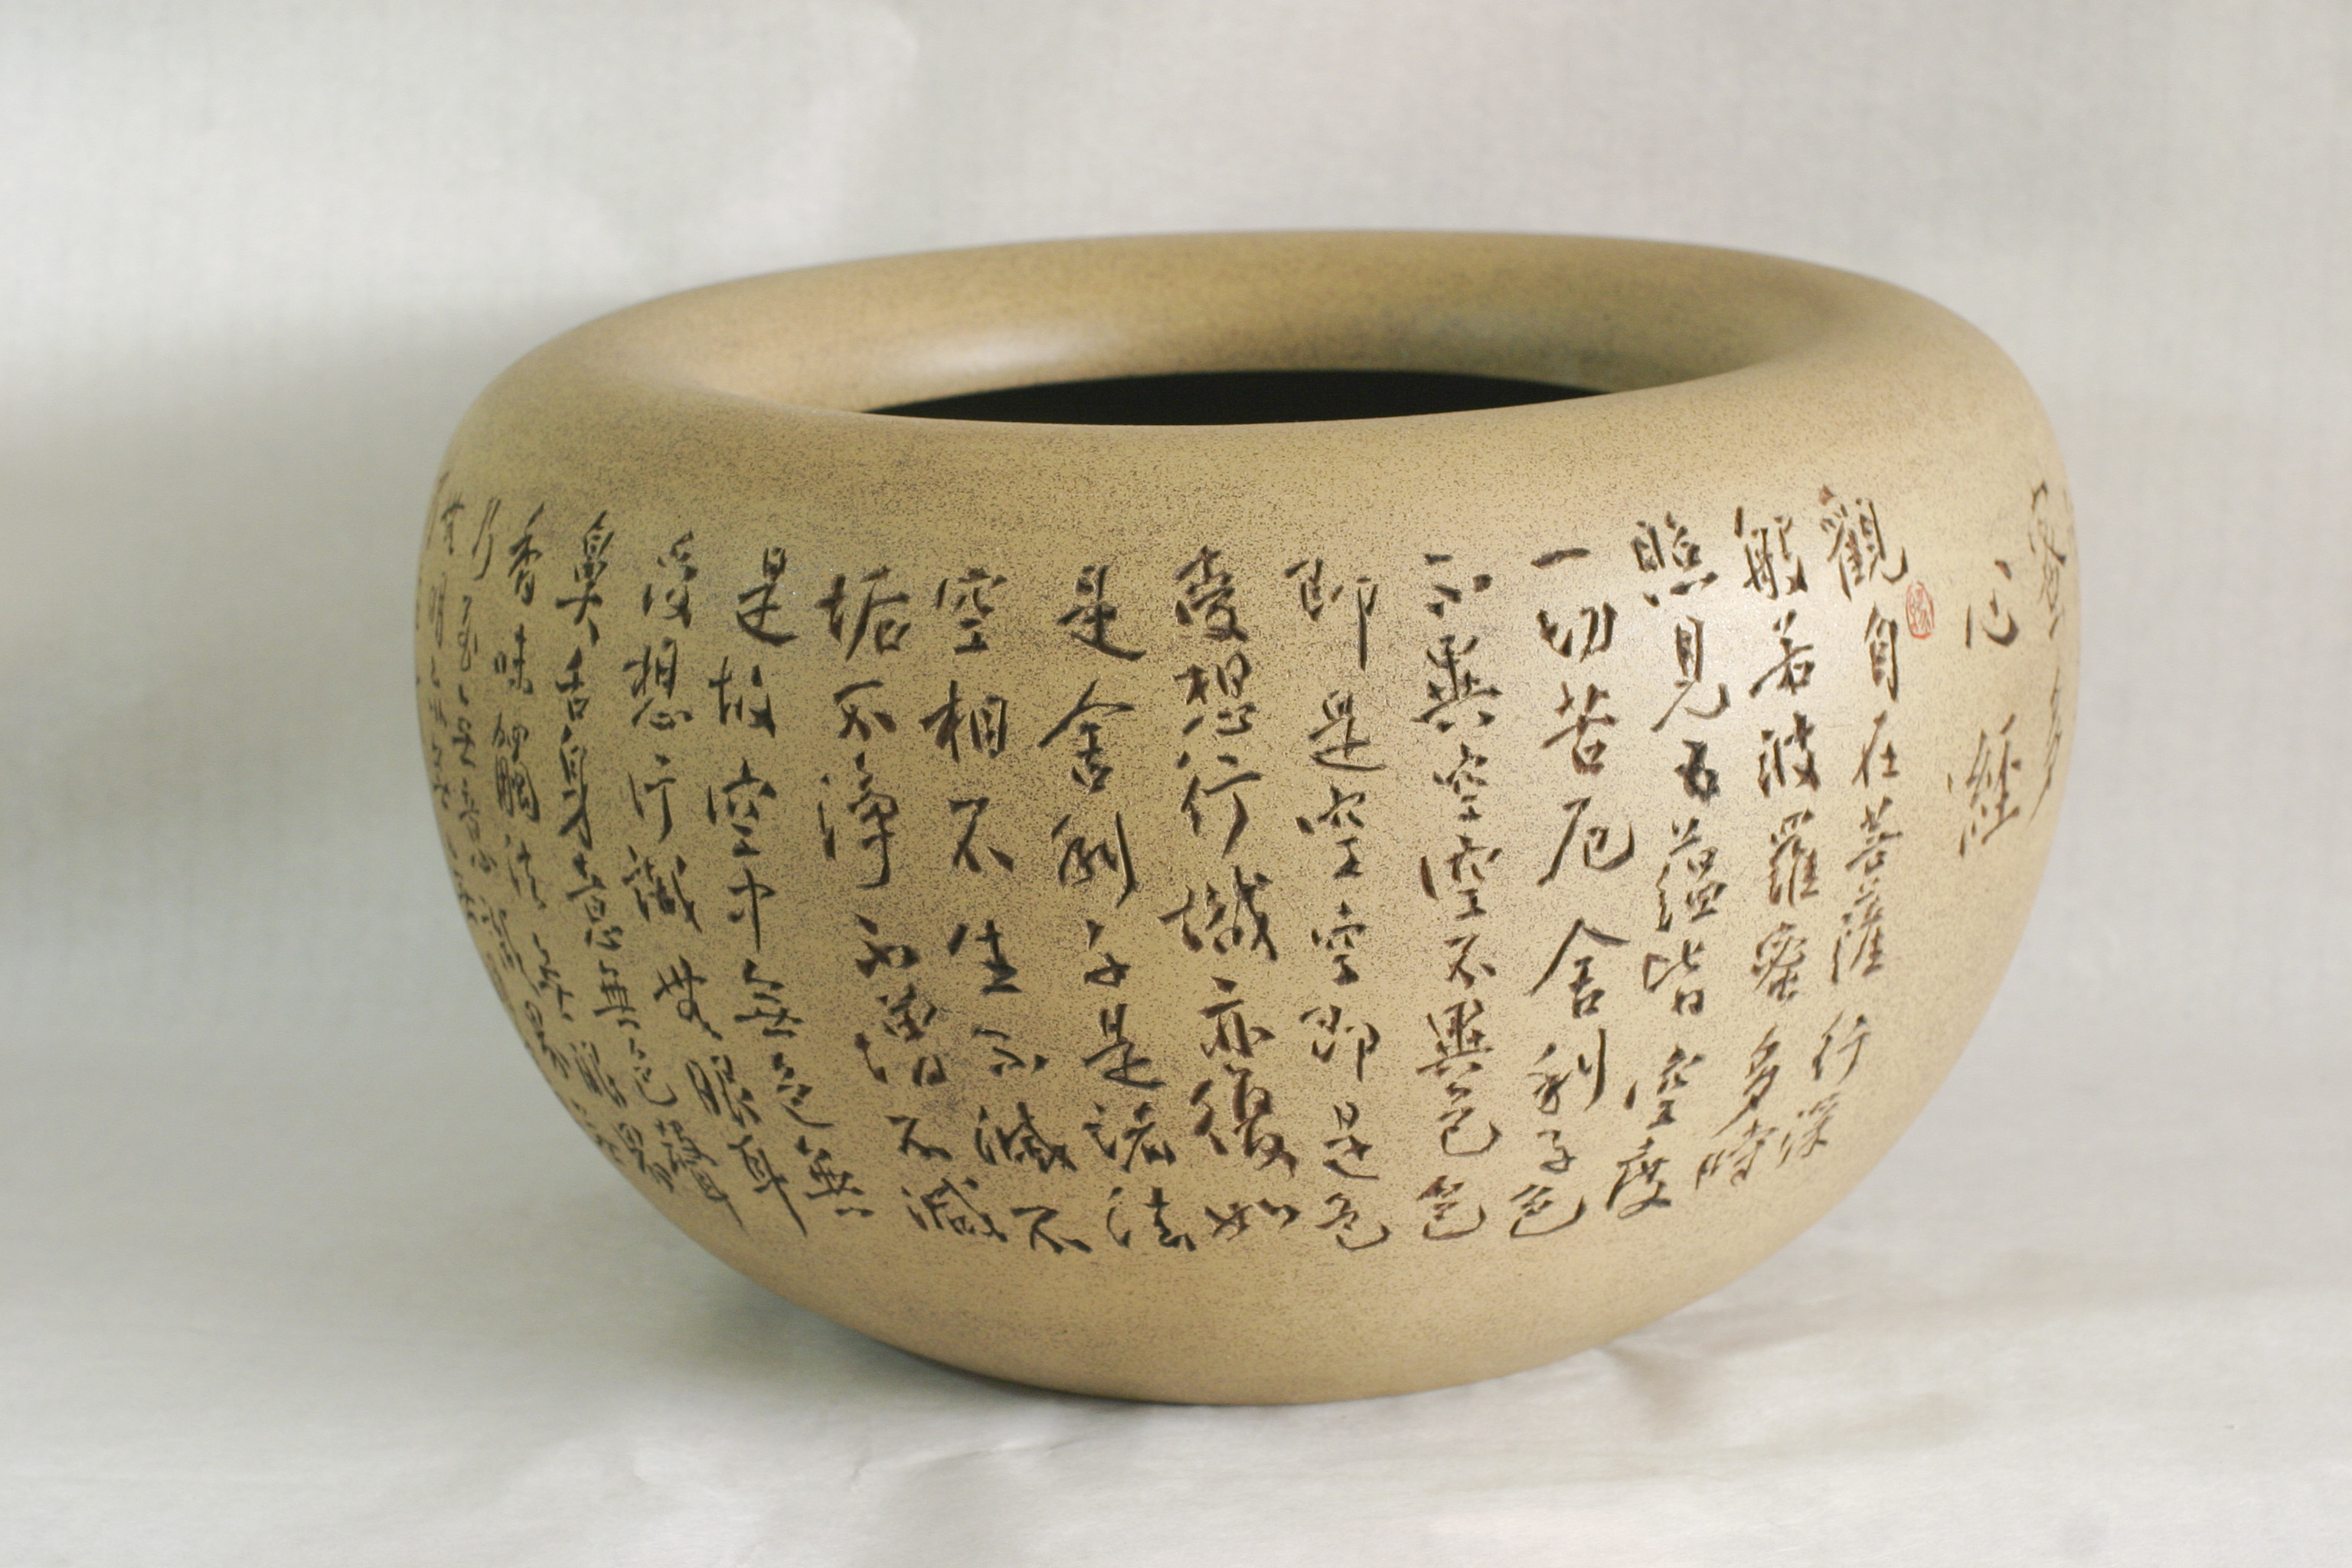 蜜多
心經
觀自在菩薩行深
般若波羅蜜多時
照見五蘊皆空度
一切苦厄舍利子色
不異空空不異色色
即是空空即是色
受想行識亦復如
是舍利子是諸法
空相不生不滅不
垢不淨不增不減
是故空中無色無
受想行識無眼耳
鼻舌身意無色聲
香味觸法無眼界
乃至無意識
無明